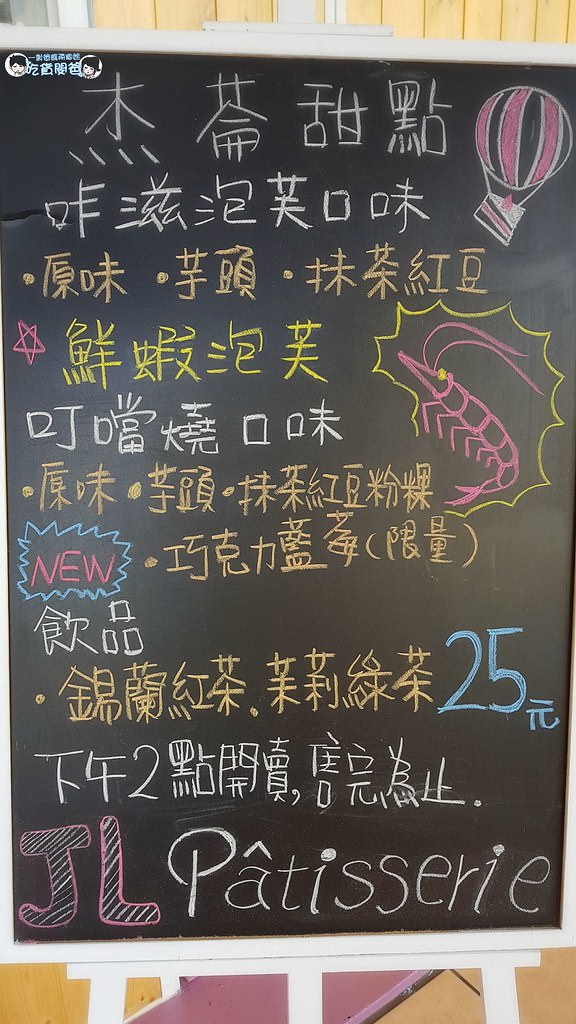 一對爸媽兩個爸
吃貨闆爸
杰崙甜點
咔滋泡芙口味
·原味 ·芋頭 ·抹茶紅豆
鮮蝦泡芙
叮噹燒口味
·原味·芋頭·抹茶紅豆粉粿
NEW ·巧克力藍莓(限量)
飲品
·錫蘭紅茶.茉莉綠茶25元
下午2點開賣,售完為止.
JL Pâtisserie